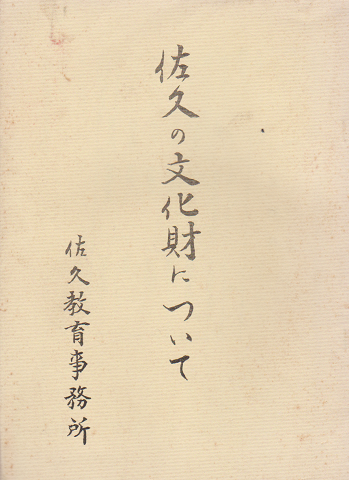 佐久の文化財について
佐久教育事務所